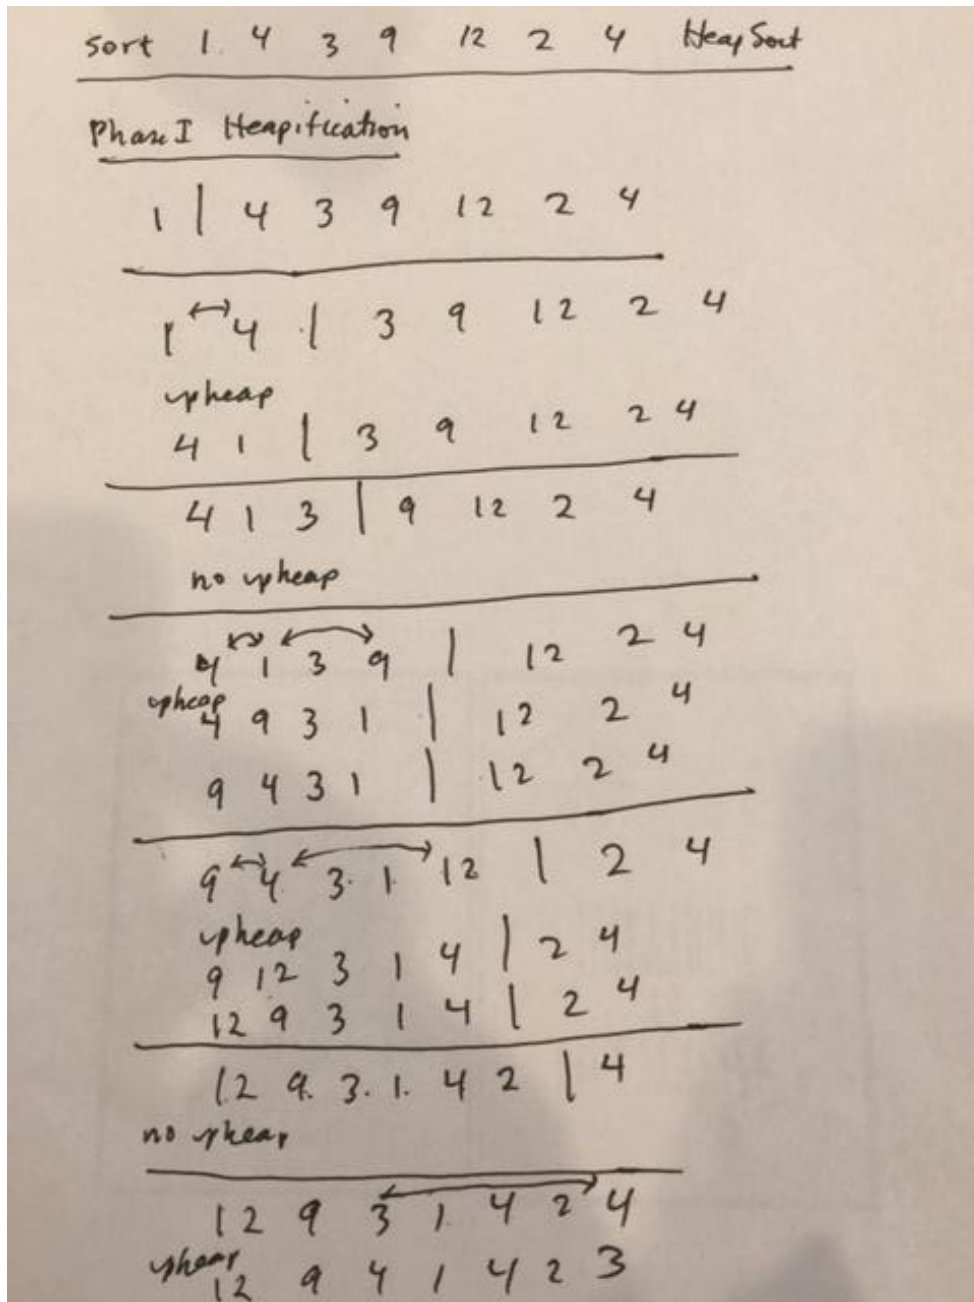 Sort 1. 4 3 9 12 2 4 HeapSort
Phase I Heapification
1 | 4 3 9 12 2 4
1 4 | 3 9 12 2 4
upheap
4 1 | 3 9 12 2 4
4 1 3 | 9 12 2 4
no upheap
4 1 3 9 | 12 2 4
upheap
4 9 3 1 | 12 2 4
9 4 3 1 | 12 2 4
9 4. 3. 1. 12 | 2 4
upheap
9 12 3 1 4 | 2 4
12 9 3 1 4 | 2 4
12 9. 3. 1. 4 2 | 4
no upheap
12 9 3 1. 4 2 4
upheap
12 9 4 1 4 2 3